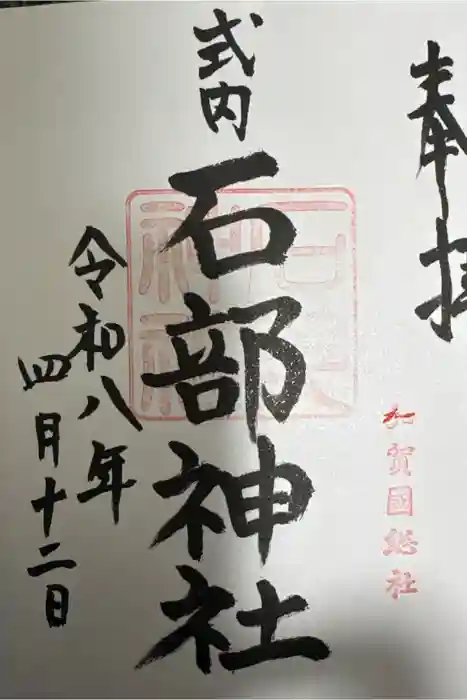 奉拝
加賀國総社
式内
石部神社
令和八年
四月十二日